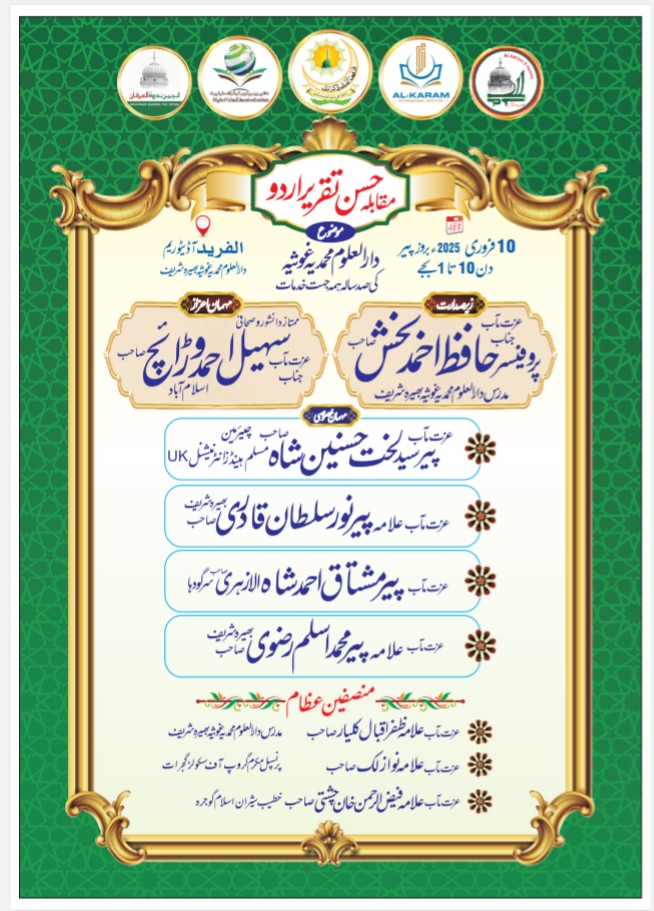 انجمن ندوۃ العرفان
AL-KARAM
مقابلہ حسن تقریر اردو
موضوع
دارالعلوم محمدیہ غوثیہ
کی صد سالہ ہمہ جہت خدمات
10 فروری 2025ء بروز پیر
دن 10 تا 1 بجے
الفرید آڈیٹوریم
دارالعلوم محمدیہ غوثیہ بھیرہ شریف
زیر صدارت
عزت مآب جناب
پروفیسر حافظ احمد بخش صاحب
مدرس دارالعلوم محمدیہ غوثیہ بھیرہ شریف
مہمان اعزاز
ممتاز دانشور و صحافی
عزت مآب جناب سہیل احمد وڑائچ صاحب
اسلام آباد
مہمان خصوصی
عزت مآب پیر سید لخت حسنین شاہ صاحب چیئرمین مسلم ہینڈز انٹرنیشنل UK
عزت مآب علامہ پیر نور سلطان قادری صاحب بھیرہ شریف
عزت مآب پیر مشتاق احمد شاہ الازہری صاحب سرگودہا
عزت مآب علامہ پیر محمد اسلم رضوی صاحب بھیرہ شریف
منصفین عظام
عزت مآب علامہ ظفر اقبال کلیار صاحب مدرس دارالعلوم محمدیہ غوثیہ بھیرہ شریف
عزت مآب علامہ نواز لک صاحب پرنسپل مکرم گروپ آف سکولز گجرات
عزت مآب علامہ فیض الرحمن خان چشتی صاحب خطیب اسلام گوجرہ